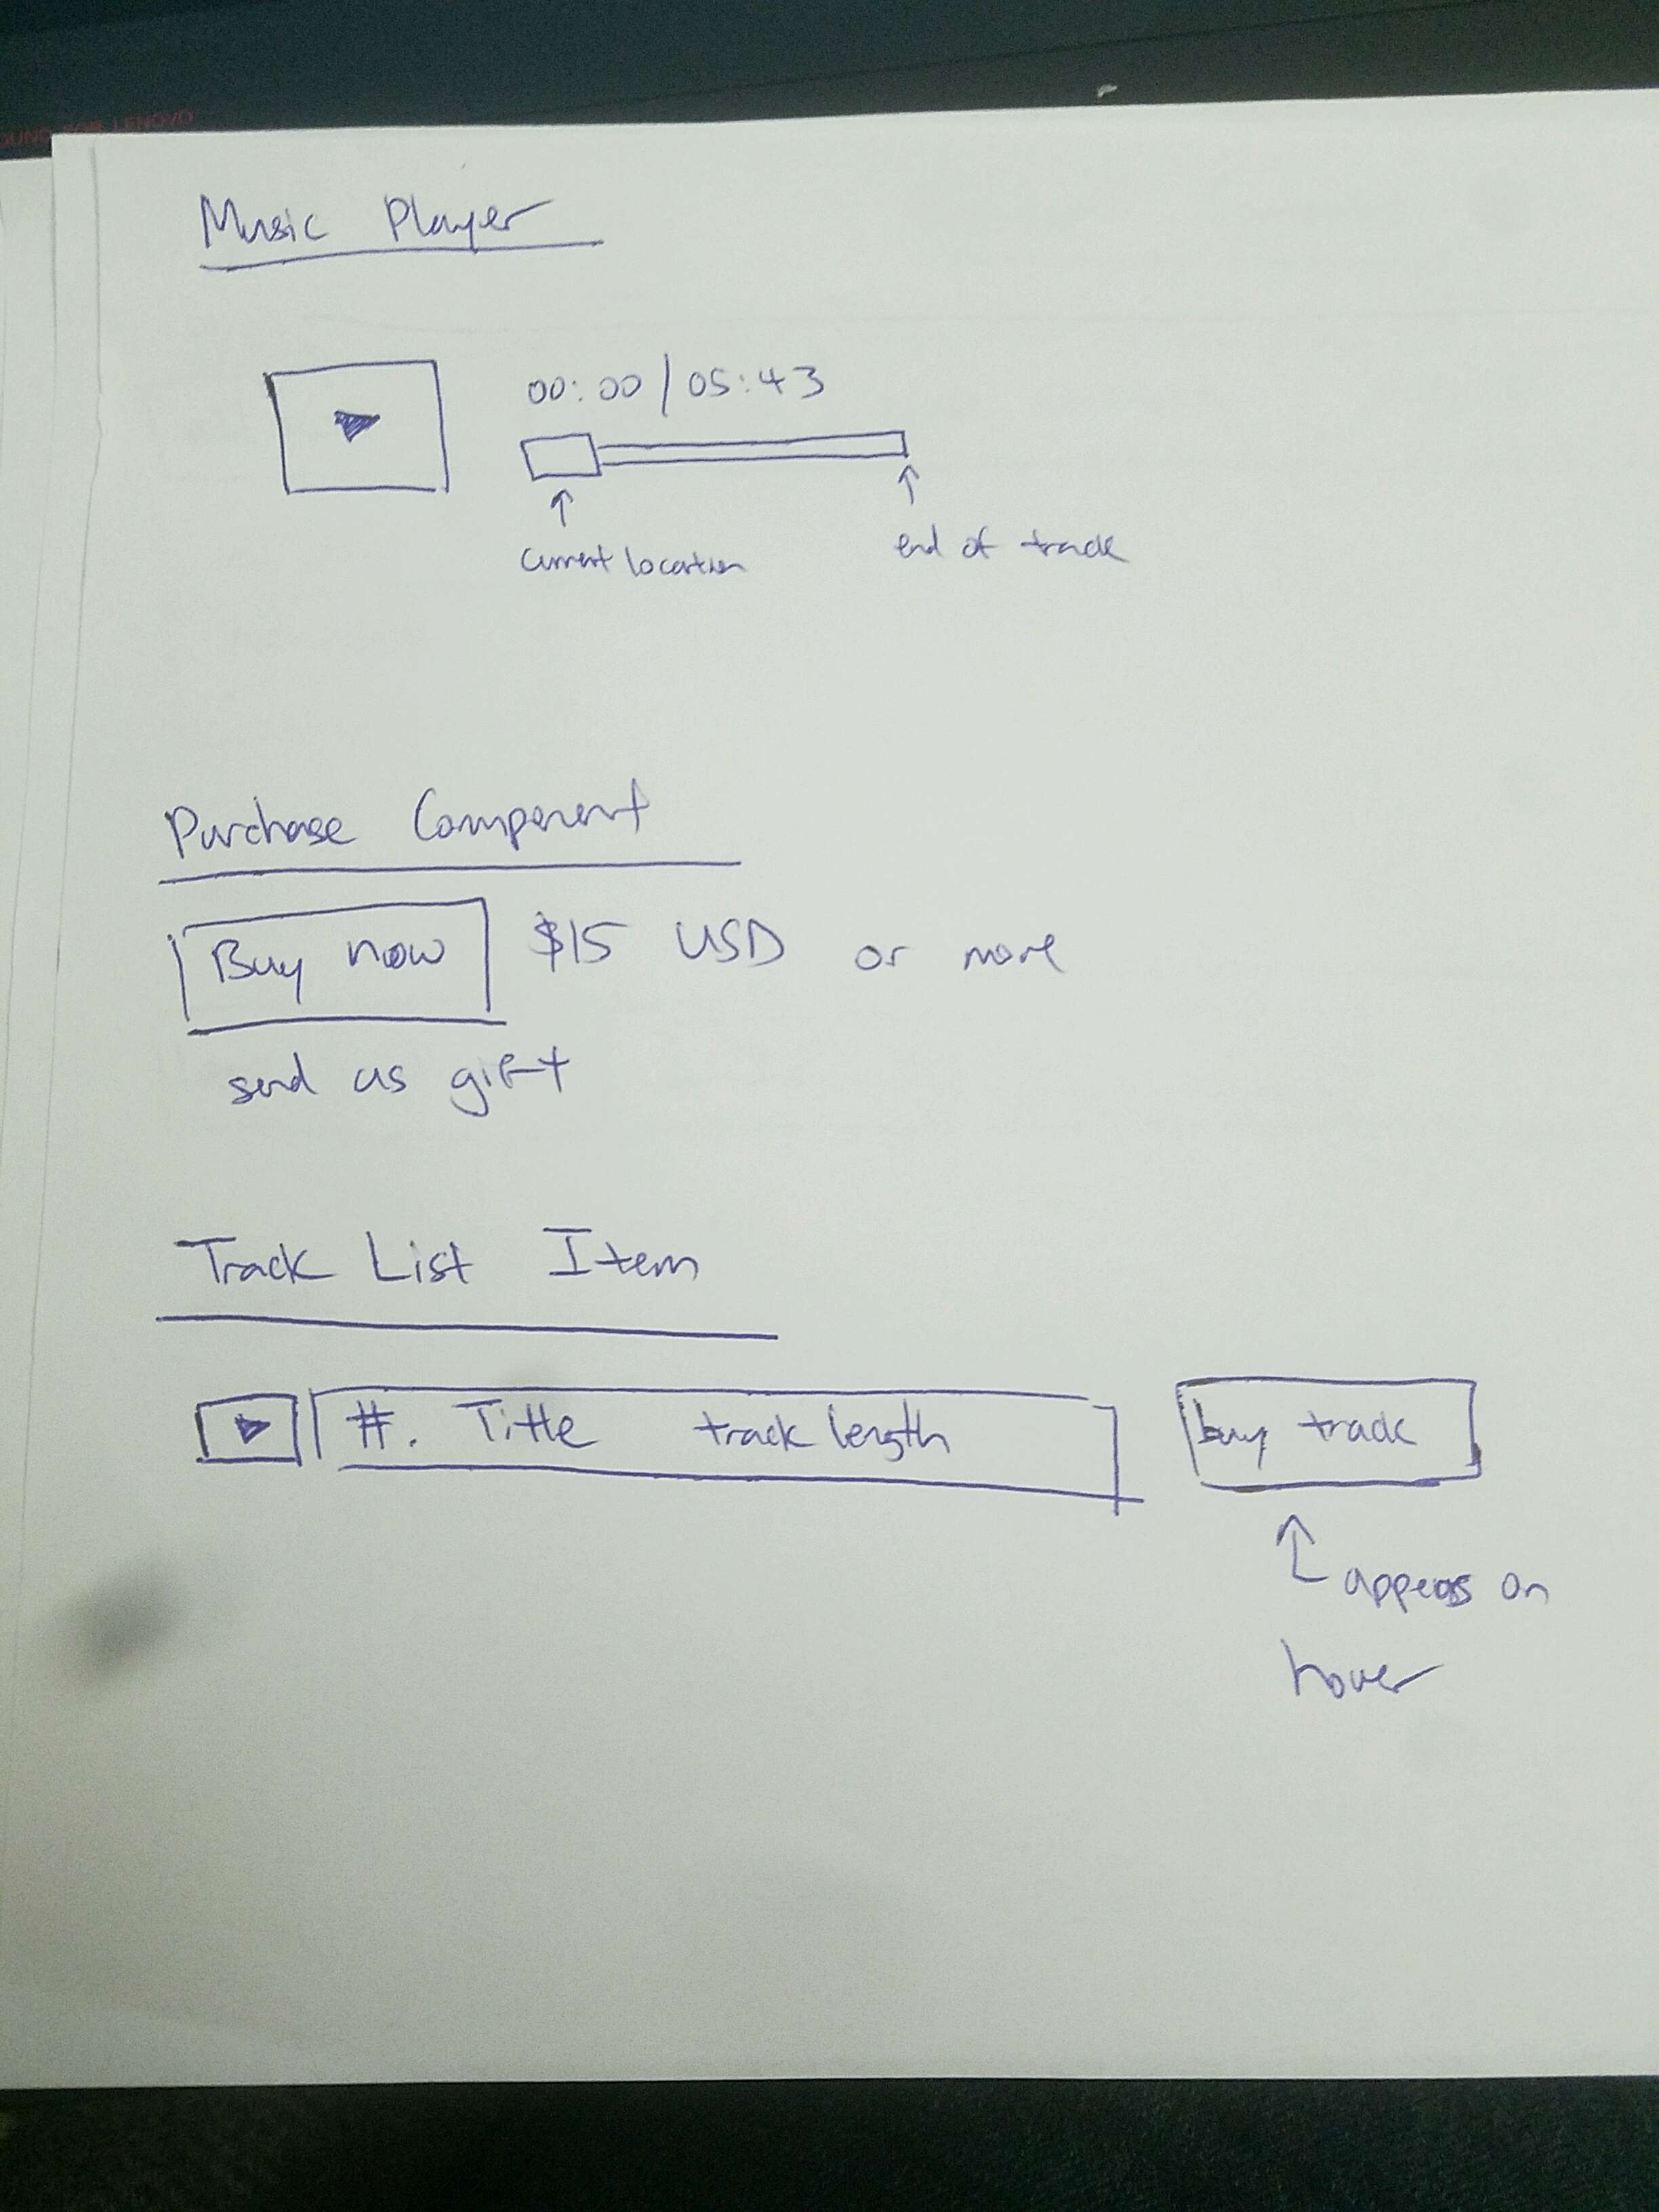 FOR LENOVO
Music Player
00:00 / 05:43
current location
end of track
Purchase Component
Buy now $15 USD or more
send as gift
Track List Item
#. Title track length buy track
appears on
hover